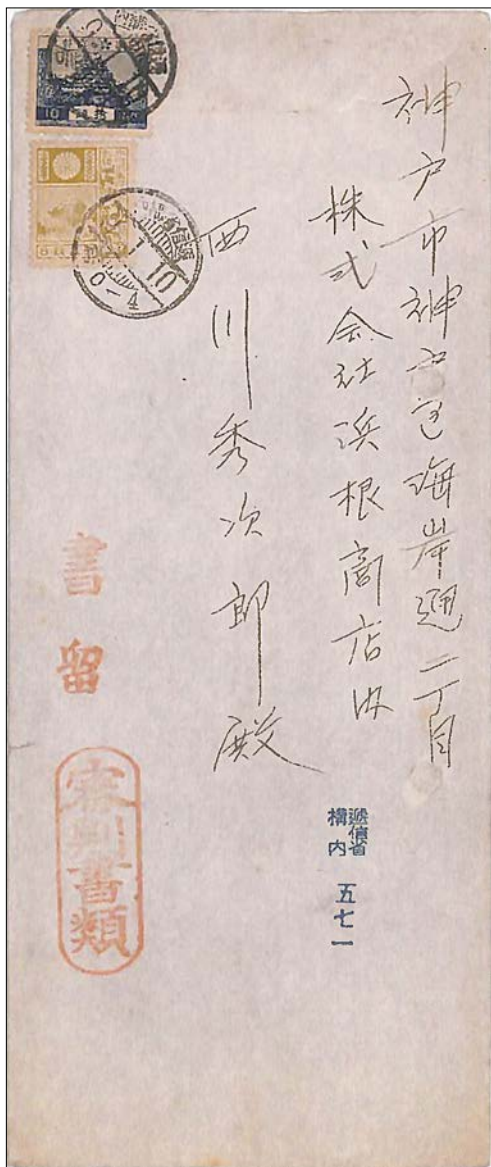 神戸市神戸区海岸通二丁目
株式会社浜根商店内
西川秀次郎殿
逓信省
構内
五七一
書留
審判書類
10
10